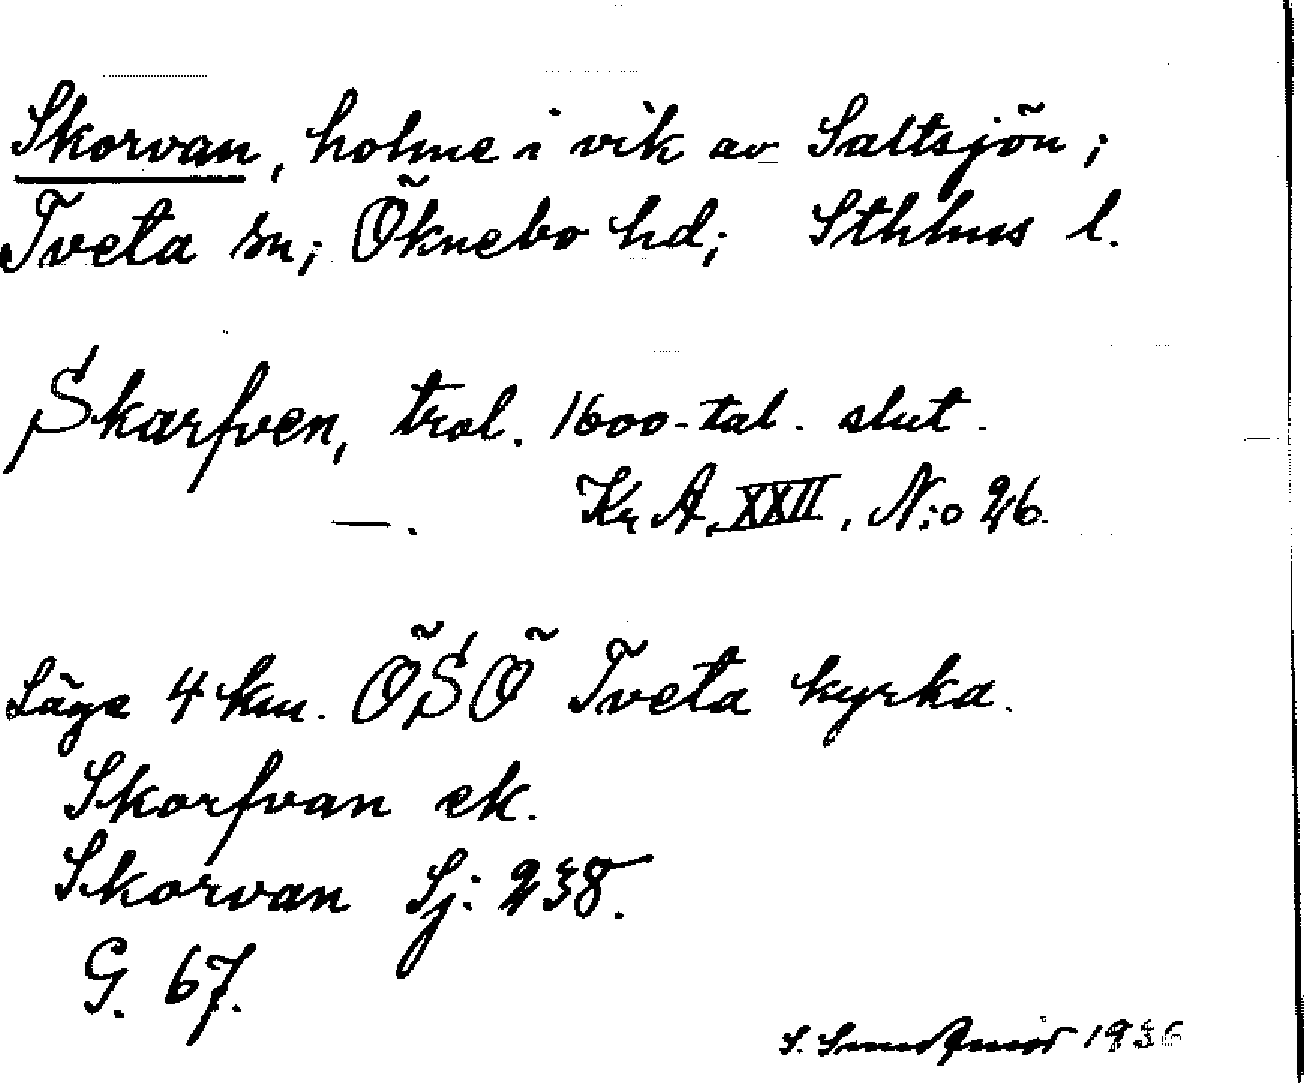 Skorvan, holme i vik av Saltsjön;
Tveta sn; Öknebo hd; Sthlms l.
Skarfven, trol. 1600-tal. slut.
—. Kr A. XXII. N:o 26.
Läge 4 km. ÖSÖ Tveta kyrka.
Skorfvan ek.
Skorvan Sj: 238.
G. 67.
S. 1936